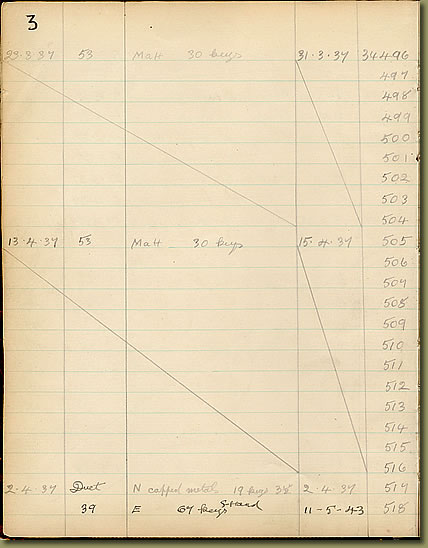 3
23.3.37 53 Matt 30 keys 31.3.37 34496
497
498
499
500
501
502
503
504
13.4.37 53 Matt 30 keys 15.4.37 505
506
507
508
509
510
511
512
513
514
515
516
2.4.37 Duet N capped metal 19 keys 2.4.37 517
39 E 67 keys 11-5-43 518